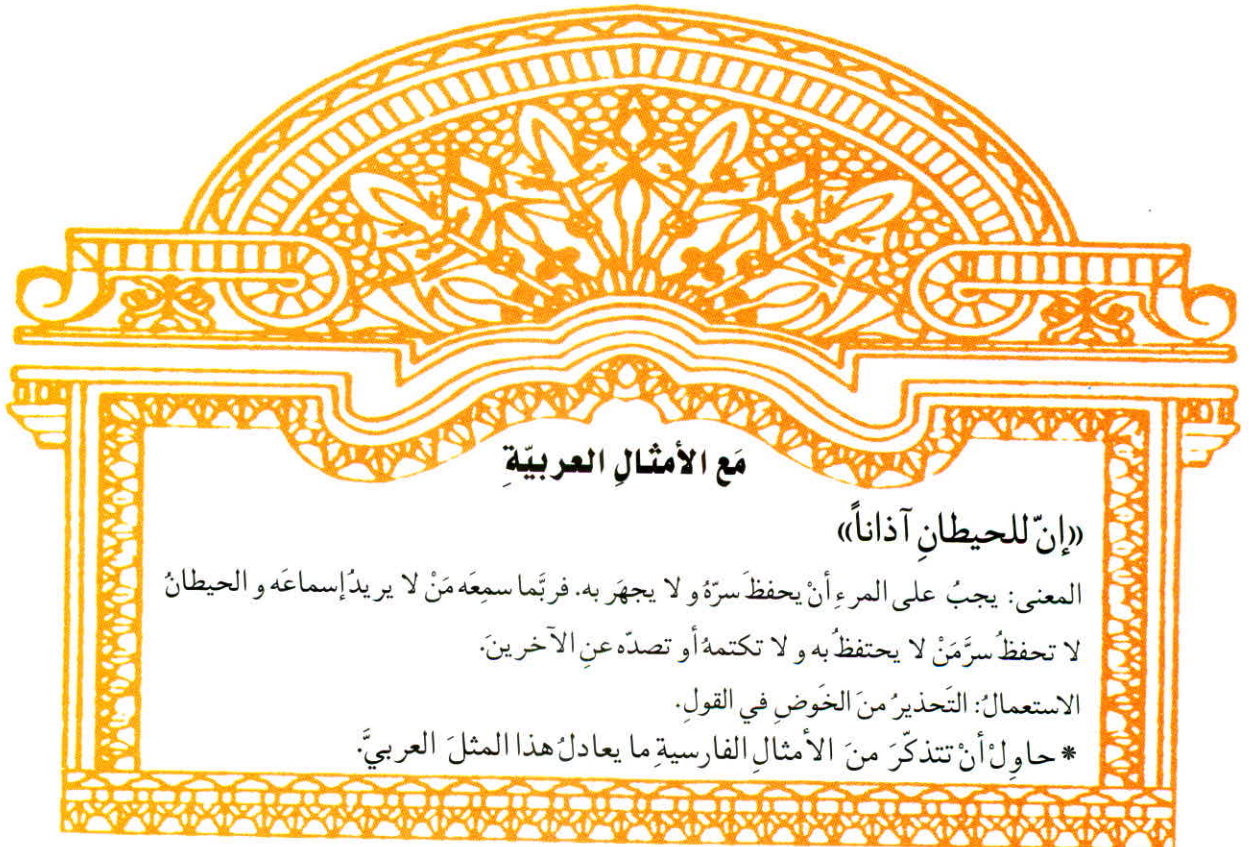 مَع الأمثـالِ العربيّةِ
«إنّ للحيطانِ آذاناً»
المعنى: يجبُ على المرءِ أنْ يحفظَ سرّهُ و لا يجهَر به. فربَّما سمِعَه مَنْ لا يريدُ إسماعَه و الحيطانُ
لا تحفظُ سرَّ مَنْ لا يحتفظُ به و لا تكتمهُ أو تصدّه عنِ الآخرينَ.
الاستعمالُ: التَحذيرُ منَ الخَوضِ في القولِ.
* حاوِلْ أنْ تتذكّرَ منَ الأمثالِ الفارسيةِ ما يعادلُ هذا المثلَ العربيَّ.